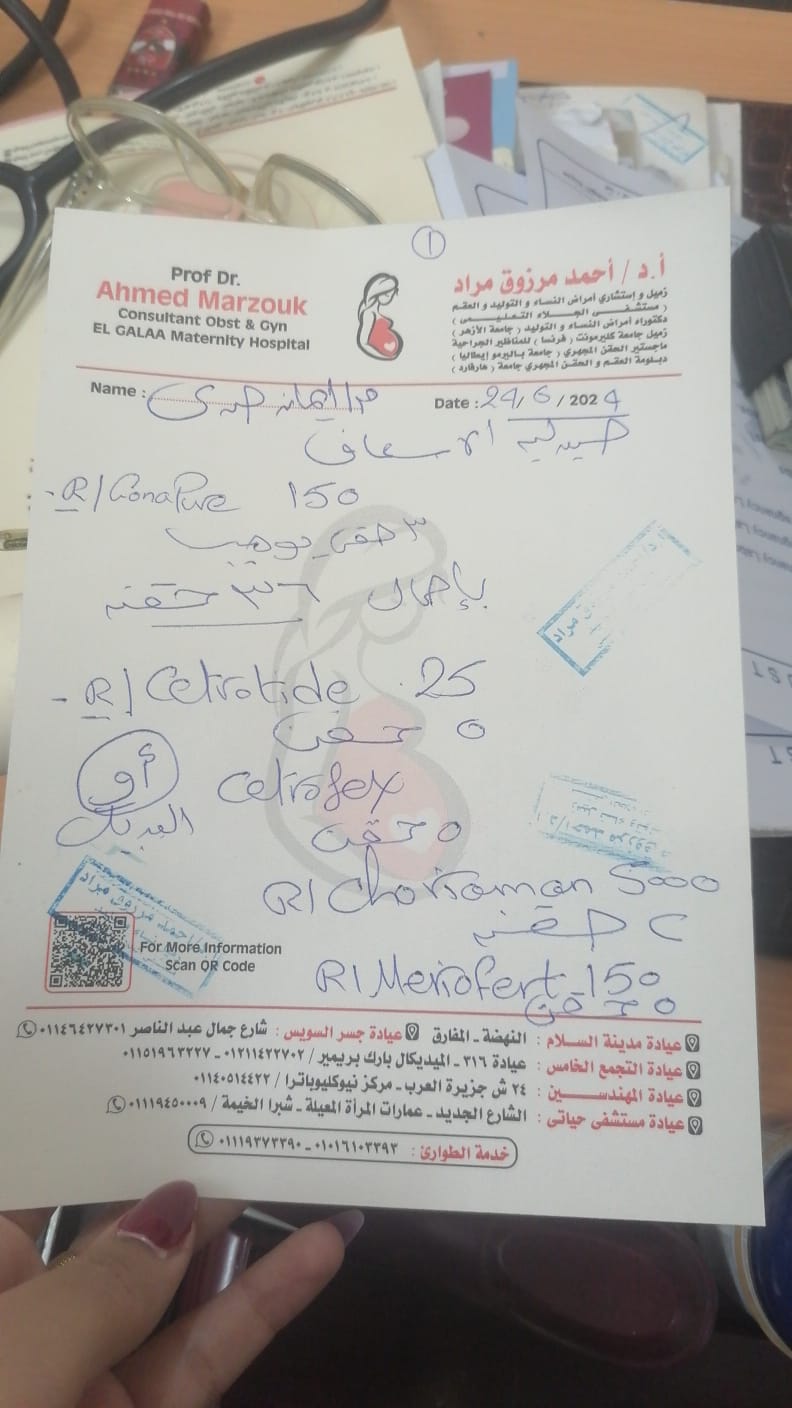 ١
Prof Dr.
Ahmed Marzouk
Consultant Obst & Gyn
EL GALAA Maternity Hospital
أ.د / أحمد مرزوق مراد
زميل و إستشاري أمراض النساء و التوليد و العقم
( مستشفى الجلاء التعليمى )
دكتوراه أمراض النساء و التوليد ( جامعة الأزهر )
زميل جامعة كليرمونت ( فرنسا ) للمناظير الجراحية
ماجستير الحقن المجهري ( جامعة باليرمو إيطاليا )
دبلومة العقم و الحقن المجهري جامعة ( هارفارد )
Name :
Date : 24/6/2024
صيدلية الاسعاف
- R/ GonaPure 150
٣ حقن يوميا
بإجمالى ٣٦ حقنه
- R/ Cetrotide .25
٥ حقن
أو
Cetrofex
البديل
٥ حقن
R/ Choriomon 5000
٢ حقنه
R/ Meriofert 150
٥ حقن
For More Information
Scan QR Code
عيادة مدينة السلام : النهضة - المفارق عيادة جسر السويس : شارع جمال عبد الناصر ٠١١٤٦٤٢٧٣٠١
عيادة التجمع الخامس : عيادة ٣١٦ - الميديكال بارك بريمير / ٠١٢١١٤٢٢٧٠٢ - ٠١١٥١٩٦٣٢٢٧
عيادة المهندسين : ٢٤ ش جزيرة العرب - مركز نيوكليوباترا / ٠١١٤٠٥١٤٤٢٢
عيادة مستشفى حياتى : الشارع الجديد - عمارات المرأة المعيلة - شبرا الخيمة / ٠١١١٩٤٥٠٠٠٩
خدمة الطوارئ : ٠١٠١٦١٠٣٣٩٣ - ٠١١١٩٣٧٣٣٩٠